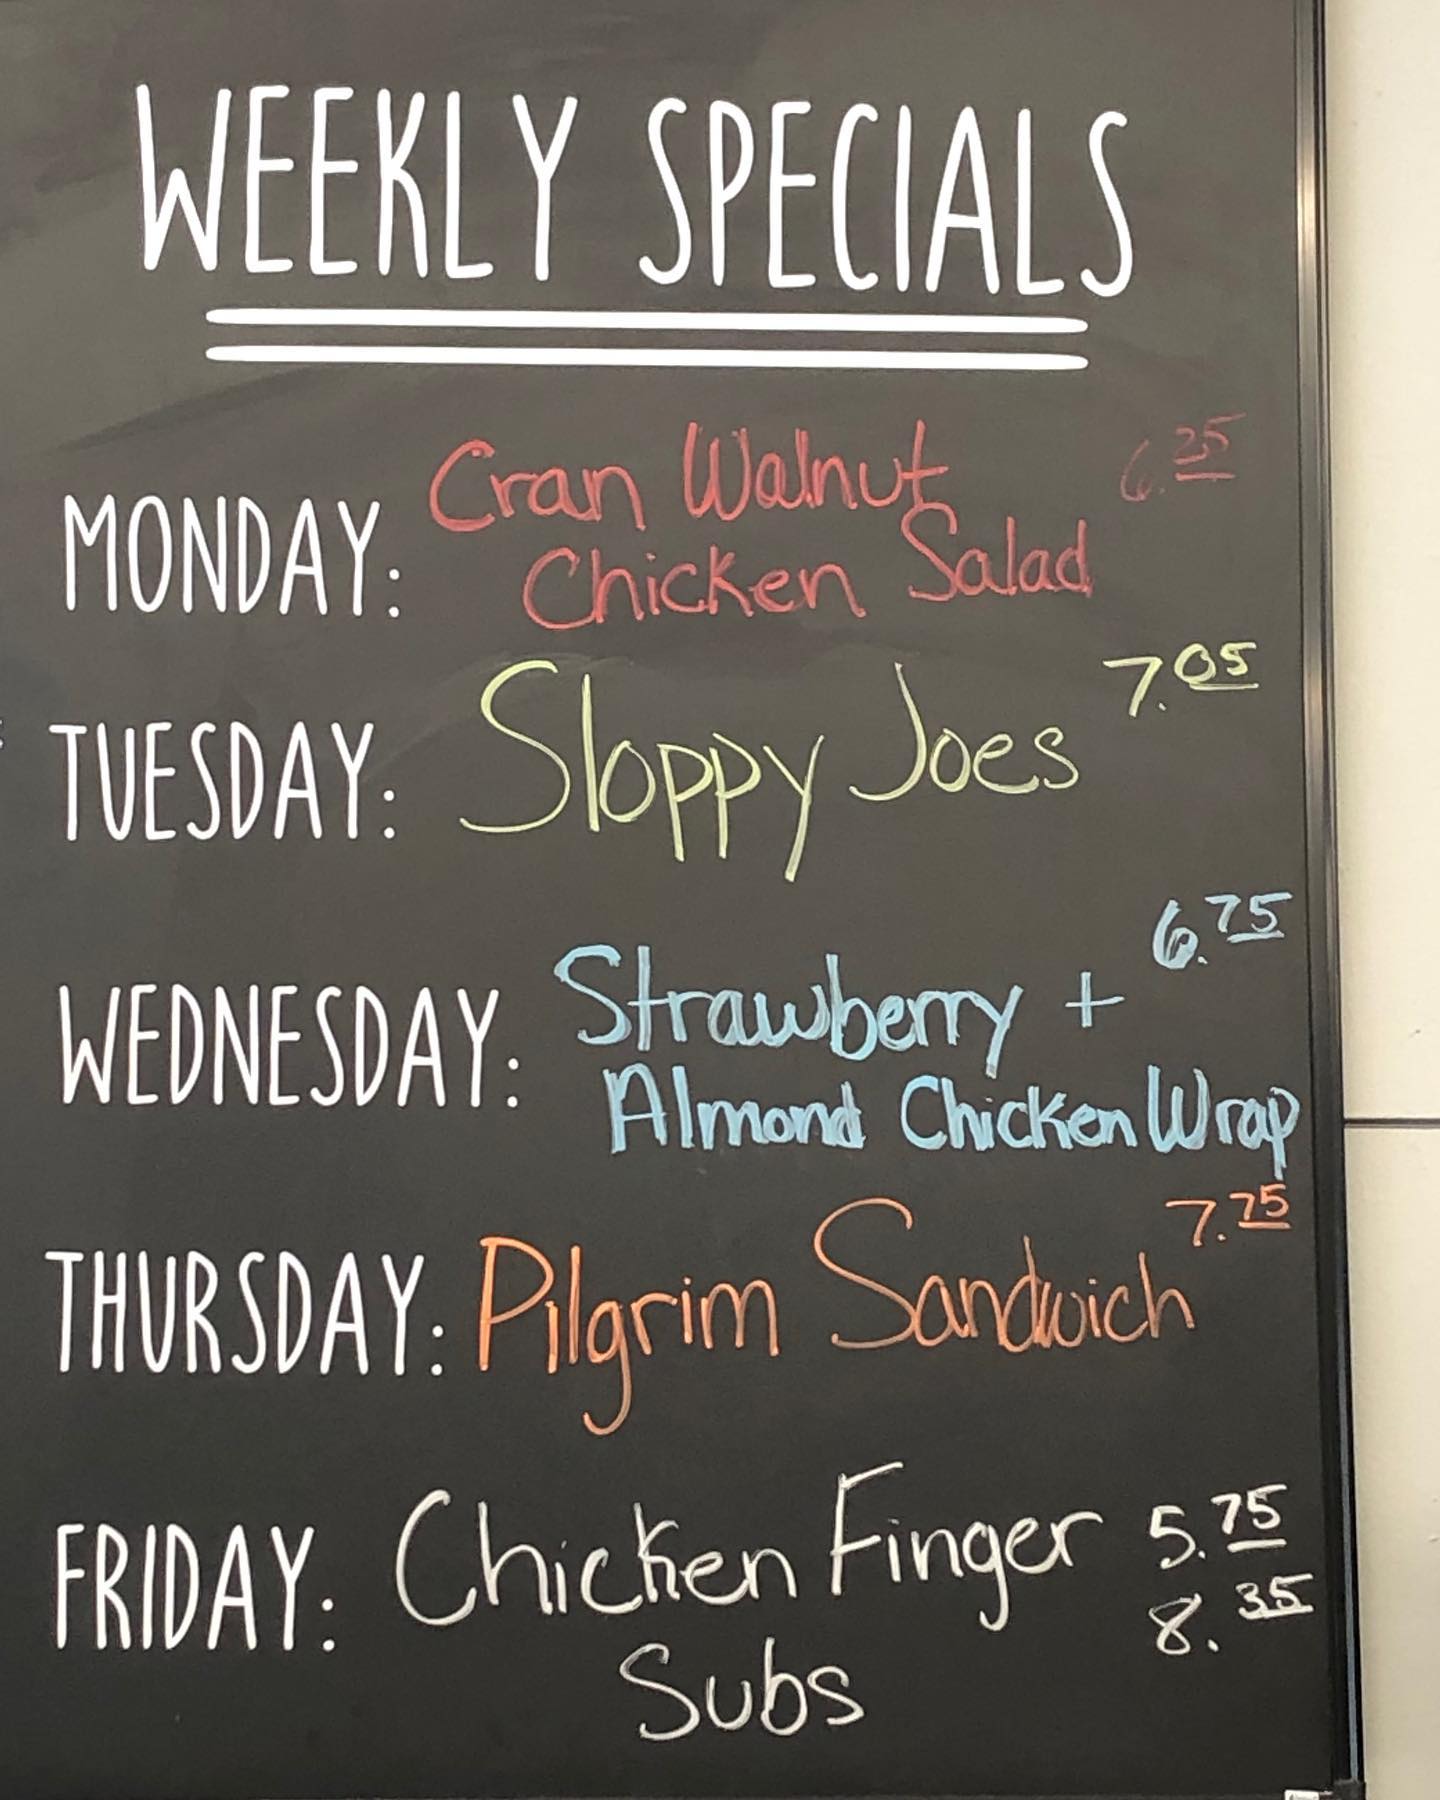 WEEKLY SPECIALS
MONDAY: Cran Walnut 6.25
Chicken Salad
TUESDAY: Sloppy Joes 7.05
WEDNESDAY: Strawberry + 6.75
Almond Chicken Wrap
THURSDAY: Pilgrim Sandwich 7.75
FRIDAY: Chicken Finger 5.75
Subs 8.35